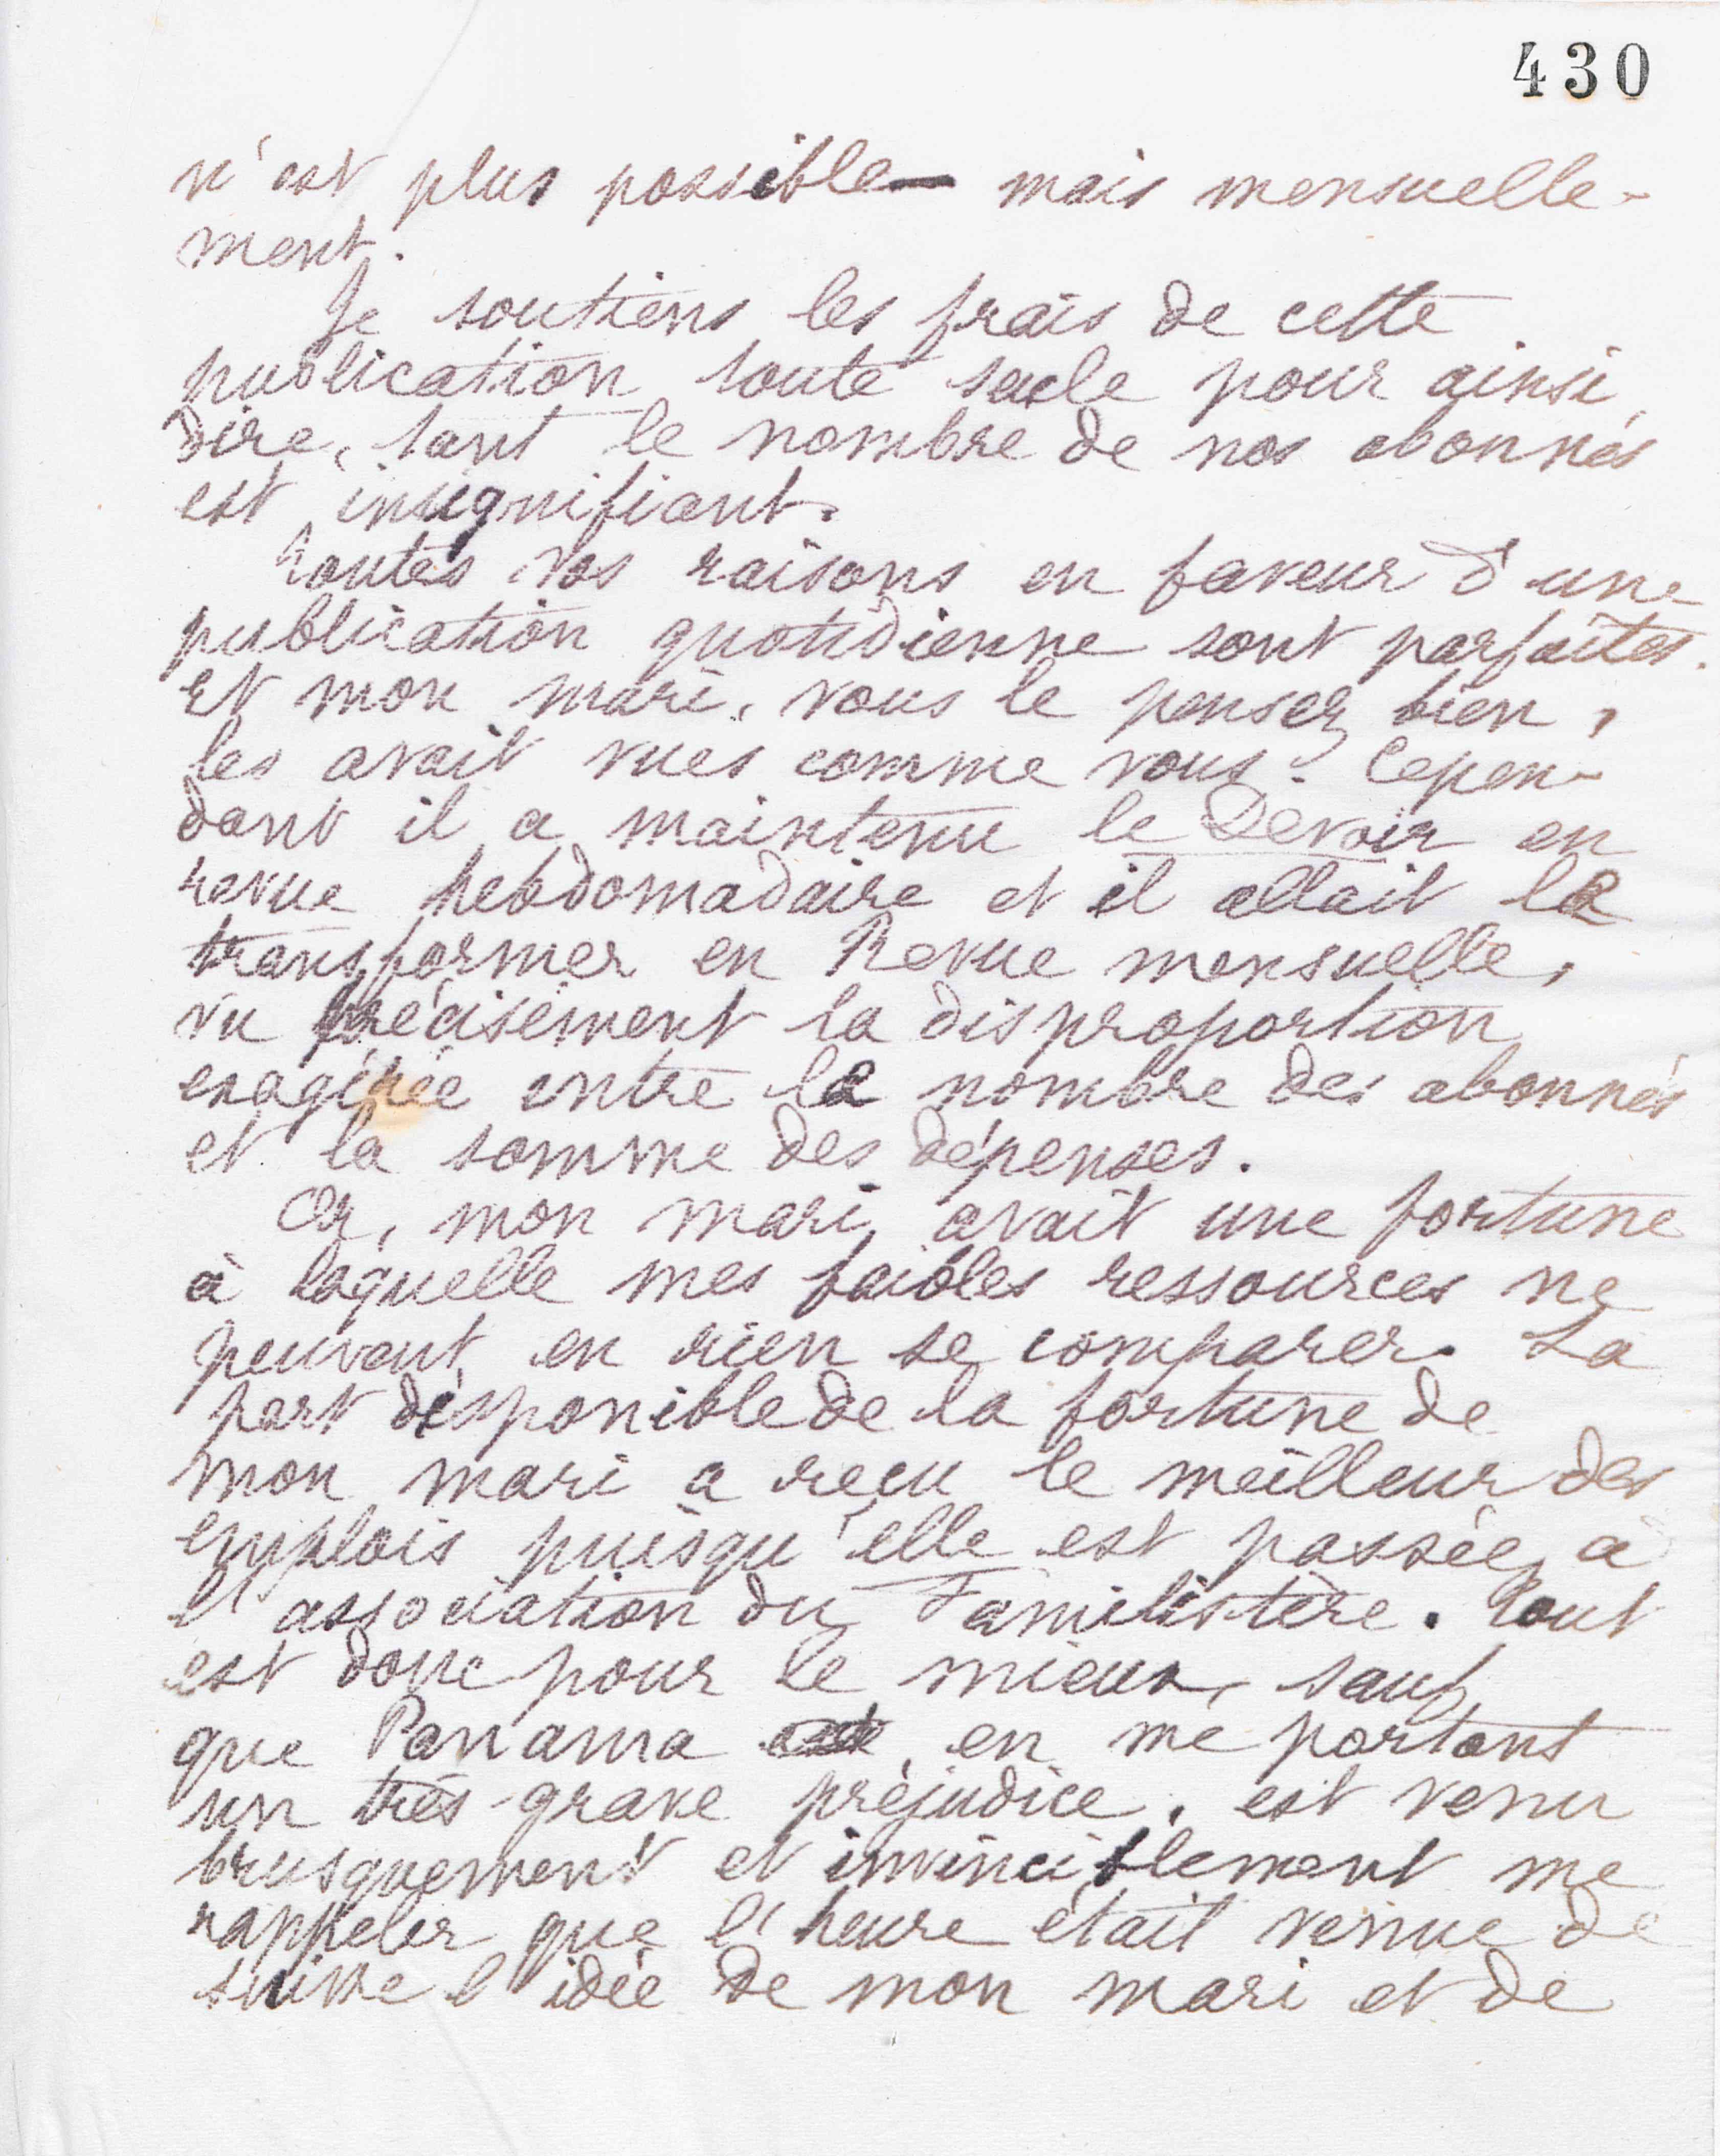 430
n'est plus possible — mais mensuelle-
ment.
Je soutiens les frais de cette
publication toute seule pour ainsi
dire, tant le nombre de nos abonnés
est insignifiant.
Toutes vos raisons en faveur d'une
publication quotidienne sont parfaites.
Et mon mari, vous le pensez bien,
les avait vues comme vous. Cepen-
dant il a maintenu le Devoir en
revue hebdomadaire et il allait le
transformer en Revue mensuelle,
vu précisément la disproportion
exagérée entre le nombre des abonnés
et la somme des dépenses.
Or, mon mari avait une fortune
à laquelle mes faibles ressources ne
peuvent en rien se comparer. La
part disponible de la fortune de
mon mari a reçu le meilleur des
emplois puisqu'elle est passée à
l'association du Familistère. Tout
est donc pour le mieux, sauf
que Panama, en me portant
un très grave préjudice, est venu
brusquement et invinciblement me
rappeler que l'heure était venue de
suivre l'idée de mon mari et de